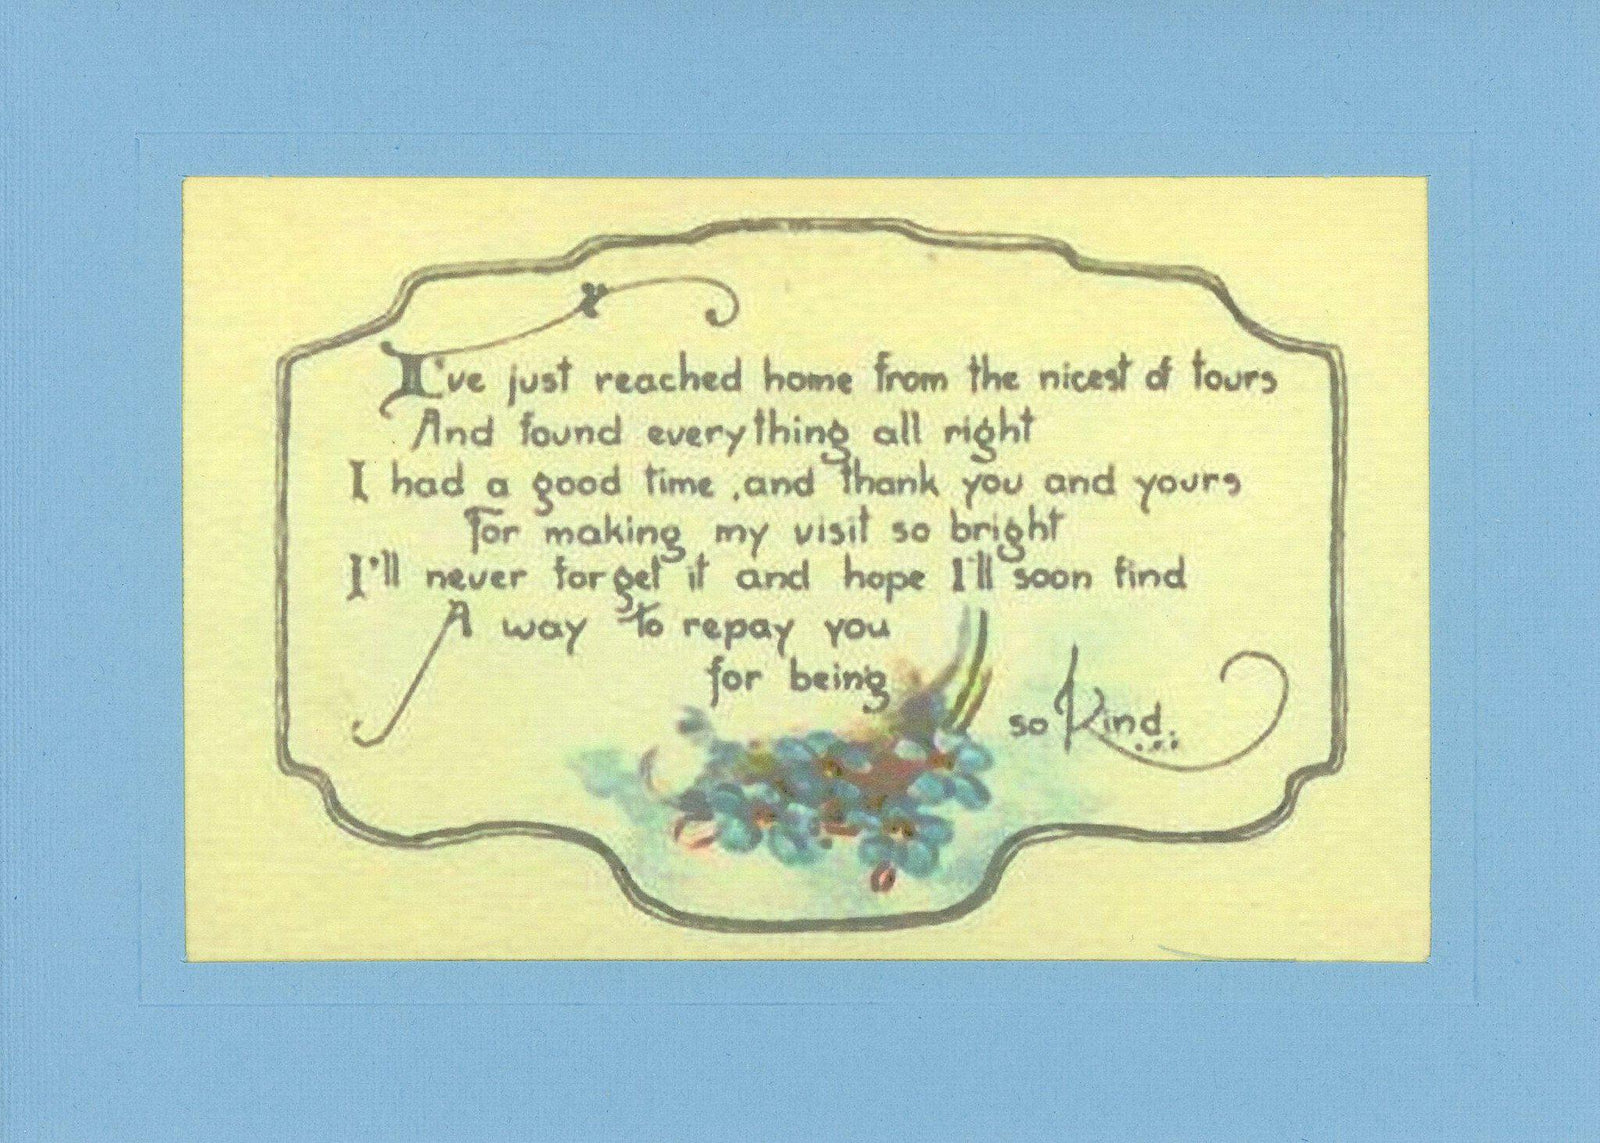 I've just reached home from the nicest of tours
And found everything all right
I had a good time, and thank you and yours
For making my visit so bright
I'll never forget it and hope I'll soon find
A way to repay you
for being
so Kind....